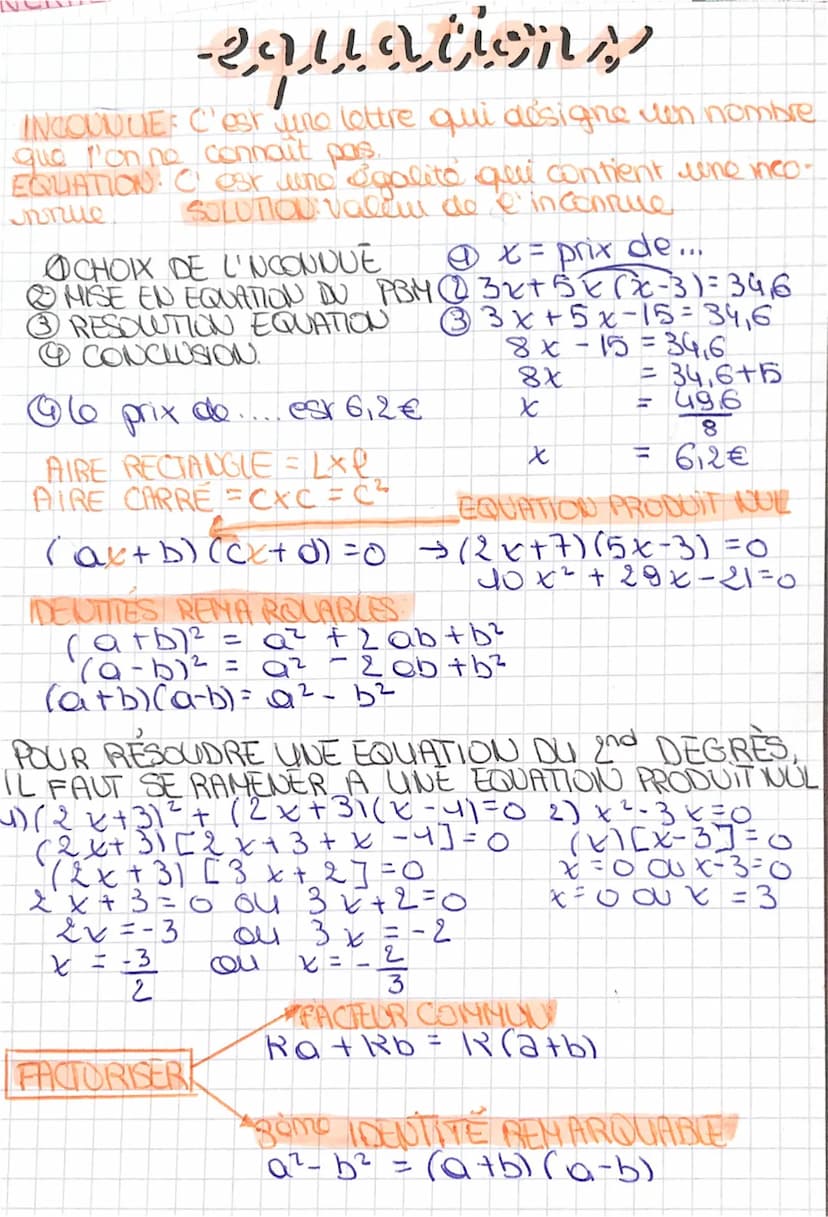 équations
INCONNUE: C'est une lettre qui désigne un nombre
que l'on ne connaît pas.
EQUATION: C'est une égalité qui contient une inco-
nnue. SOLUTION: valeur de l'inconnue
① CHOIX DE L'INCONNUE
② MISE EN EQUATION DU PBM
③ RESOLUTION EQUATION
④ CONCLUSION.
④ le prix de.... est 6,2€
① x = prix de...
② 3x+5x(x-3)=34,6
③ 3x+5x-15=34,6
8x-15=34,6
8x = 34,6+15
x = 49,6/8
x = 6,2€
AIRE RECTANGLE = L×l
AIRE CARRÉ = C×C = C²
EQUATION PRODUIT NUL
(ax+b)(cx+d)=0 → (2x+7)(5x-3)=0
10x²+29x-21=0
IDENTITÉS REMARQUABLES
(a+b)² = a²+2ab+b²
(a-b)² = a²-2ab+b²
(a+b)(a-b)= a²-b²
POUR RÉSOUDRE UNE EQUATION DU 2nd DEGRÈS,
IL FAUT SE RAMENER A UNE EQUATION PRODUIT NUL
1) (2x+3)²+(2x+3)(x-4)=0
(2x+3)[2x+3+x-4]=0
(2x+3)[3x+2]=0
2x+3=0 ou 3x+2=0
2x=-3 ou 3x=-2
x = -3/2 ou x = -2/3
2) x²-3x=0
(x)[x-3]=0
x=0 ou x-3=0
x=0 ou x=3
FACTORISER
FACTEUR COMMUN
Ka+Kb = K(a+b)
3ème IDENTITÉ REMARQUABLE
a²-b² = (a+b)(a-b)